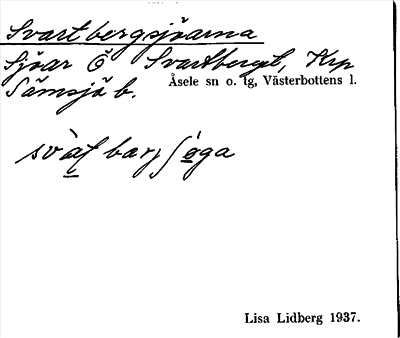 Svartbergsjöarna
Sjöar Ö Svartberget, Krp
Sämsjö b.
Åsele sn o. tg, Västerbottens l.
Lisa Lidberg 1937.